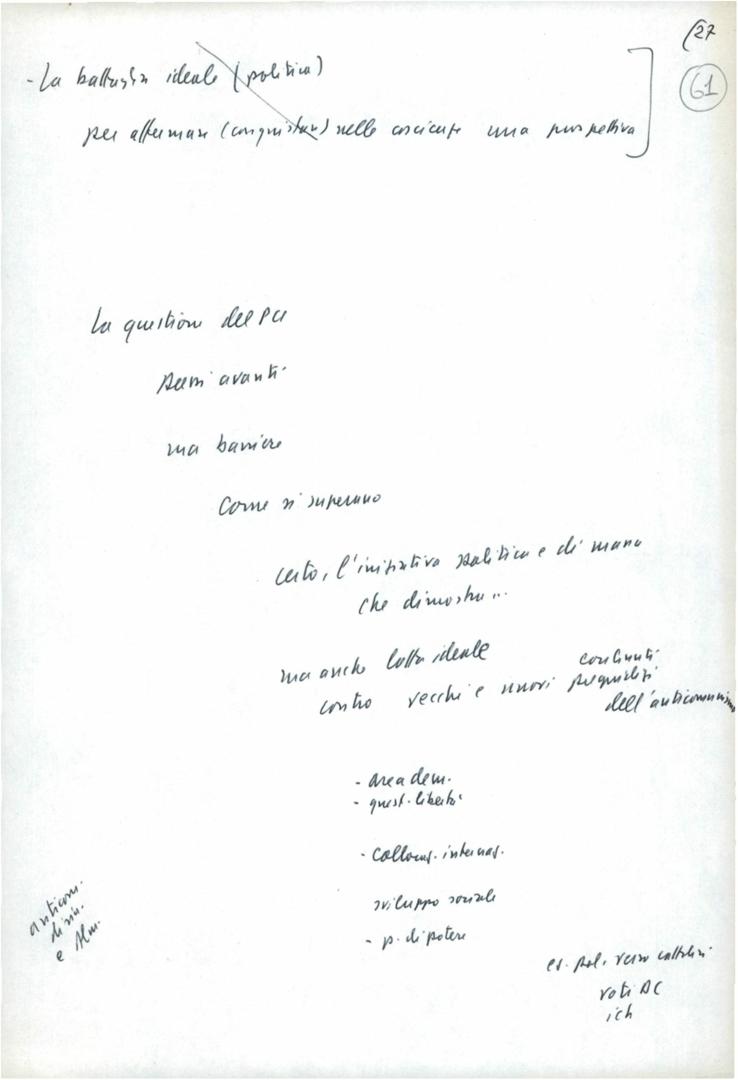 (27
61
- La battaglia ideale (politica)
per affermare (conquistare) nelle coscienze una prospettiva
La questione del PCI
Passi avanti
ma barriere
Come si superano
certo, l'iniziativa politica e di massa
che dimostra...
ma anche lotta ideale
contro vecchi e nuovi pregiudizi
continuati
dell'anticomunismo
- area dem.
- quest. libertà
- Collocaz. internaz.
sviluppo sociale
- p. di potere
anticom.
di sin.
e
es. pol. verso cattolici
voti DC